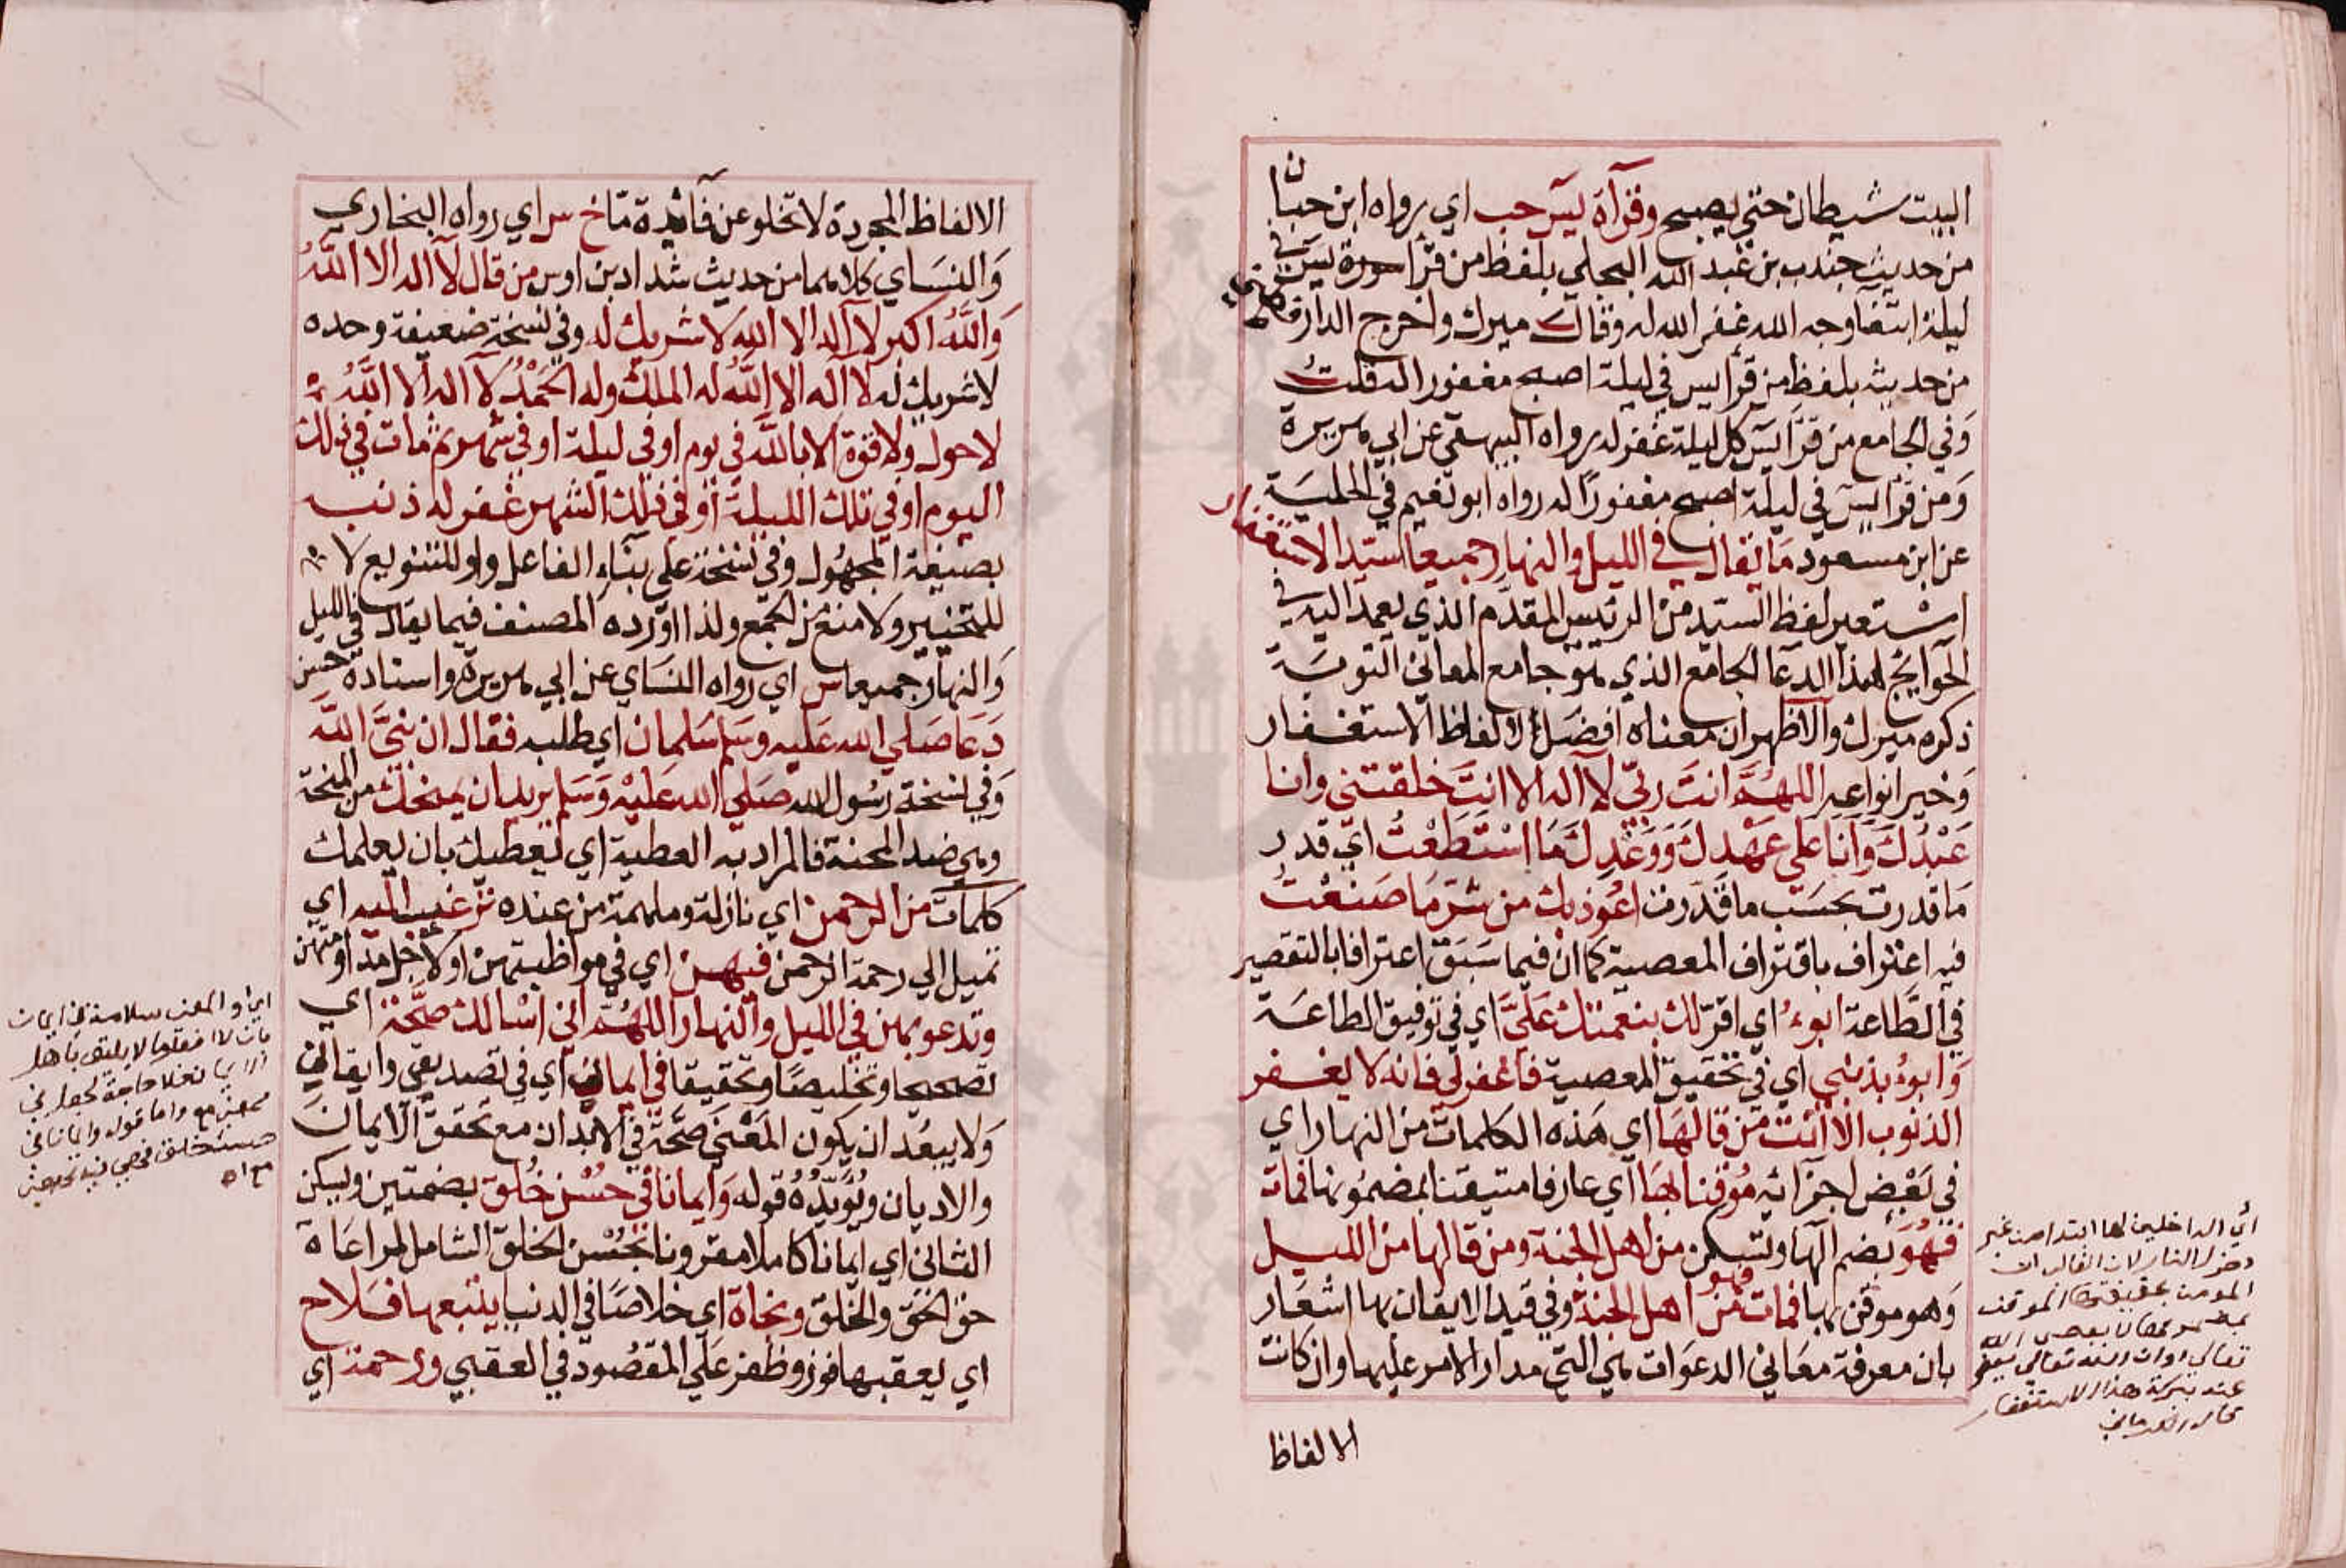 البيت شيطان حتى يصبح وقرآة يس حب اي رواه ابن حبان
من حديث جندب بن عبد الله البجلي بلفظ من قرا سورة يس في
ليلة ابتغا وجه الله غفر الله له وقال ميرك واخرج الدارقطني
من حديثه بلفظ من قرأ يس في ليلة اصبح مغفورا له قلت
وفي الجامع من قرا يس كل ليلة غفر له رواه البيهقي عن ابي هريرة
ومن قرا يس في ليلة اصبح مغفورا له رواه ابو نعيم في الحلية
عن ابن مسعود ما يقال في الليل والنهار جميعا سيد الاستغفار
استعير لفظ السيد من الرئيس المقدم الذي يعمد اليه في
الحوايج لهذا الدعا الجامع الذي هو جامع المعاني التوبة
ذكره ميرك والاظهر ان معناه افضل الفاظ الاستغفار
وخير انواعه اللهم انت ربي لا اله الا انت خلقتني وانا
عَبْدُكَ وَانَا على عَهْدِكَ وَوَعْدِكَ مَا اسْتَطَعْتُ اي قدر
ما قدرت بحسب ما قدرت اعوذ بك من شر ما صنعت
فيه اعتراف باقتراف المعصية كما ان فيما سبق اعترافا بالتقصير
في الطاعة ابوء اي اقر لك بنعمتك عليَّ اي في توفيق الطاعة
وابوء بذنبي اي في تحقيق المعصية فاغفر لي فانه لا يغفر
الذنوب الا انت من قالها اي هذه الكلمات من النهار اي
في بعض اجزائه موقنا بها اي عارفا متيقنا بمضمونها فمات
فهو بضم الها وتسكن من اهل الجنة ومن قالها من الليل
وهو موقن بها فمات فهو من اهل الجنة وفي قيد الايقان بها اشعار
بان معرفة معاني الدعوات هي التي مدار الامر عليها وان كانت
الالفاظ
اي الداخلين لها ابتدا من غير
دخول النار لان الغالب ان
المؤمن بحقيقتها الموقن
بمضمونها لا يعصي الله
تعالى او ان الله تعالى يعفو
عنه ببركة هذا الاستغفار
الالفاظ المجردة لا تخلو عن فآئدة ما خ س اي رواه البخاري
والنساي كلاهما من حديث شداد بن اوس من قال لا اله الا الله
والله اكبر لا اله الا الله لا شريك له وفي نسخة ضعيفة وحده
لا شريك له لا اله الا الله له الملك وله الحمد لا اله الا الله
لا حول ولا قوة الا بالله في يوم او في ليلة او في شهر ثم مات في ذلك
اليوم او في تلك الليلة او في ذلك الشهر غفر له ذنبه
بصيغة المجهول وفي نسخة على بناء الفاعل واو للتنويع لا
للتخيير ولا منع من الجمع ولذا اورده المصنف فيما يقال في الليل
والنهار جميعا س اي رواه النساي عن ابي هريرة واسناده حسن
دعا صلى الله عليه وسلم سلمان اي طلبه فقال ان نبي الله
وفي نسخة رسول الله صلى الله عليه وسلم يريد ان يمنحك من المنحة
وهي ضد المحنة فالمراد به العطية اي ليعطيك بان يعلمك
كلمات من الرحمن اي نازلة وملهمة من عنده ترغب اليه اي
تميل الي رحمة الرحمن فيهن اي في مواظبتهن او لاجل مداومتهن
وتدعو بهن في الليل والنهار اللهم اني اسالك صحة اي
تصحيحا وتخليصا وتحقيقا في ايمان اي في تصديقي وايقاني
ولا يبعد ان يكون المعنى صحة في الابدان مع تحقق الايمان
والاديان ويؤيده قوله وايمانا في حسن خلق بضمتين ويسكن
الثاني اي ايمانا كاملا مقرونا بحسن الخلق الشامل لمراعاة
حق الحق والخلق ونجاة اي خلاصا في الدنيا يتبعها فلاح
اي يعقبها فوز وظفر على المقصود في العقبي ورحمة اي